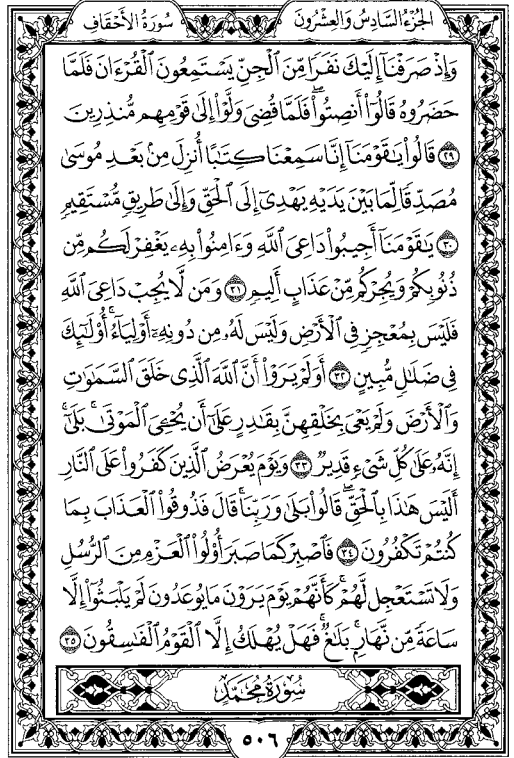 الجُزْءُ السَّادِسُ وَالعِشْرُونَ سُورَةُ الأَحْقَافِ
وَإِذْ صَرَفْنَآ إِلَيْكَ نَفَرًا مِّنَ ٱلْجِنِّ يَسْتَمِعُونَ ٱلْقُرْءَانَ فَلَمَّا
حَضَرُوهُ قَالُوٓا۟ أَنصِتُوا۟ ۖ فَلَمَّا قُضِىَ وَلَّوْا۟ إِلَىٰ قَوْمِهِم مُّنذِرِينَ
٢٩ قَالُوا۟ يَٰقَوْمَنَآ إِنَّا سَمِعْنَا كِتَٰبًا أُنزِلَ مِنۢ بَعْدِ مُوسَىٰ
مُصَدِّقًا لِّمَا بَيْنَ يَدَيْهِ يَهْدِىٓ إِلَى ٱلْحَقِّ وَإِلَىٰ طَرِيقٍ مُّسْتَقِيمٍ
٣٠ يَٰقَوْمَنَآ أَجِيبُوا۟ دَاعِىَ ٱللَّهِ وَءَامِنُوا۟ بِهِۦ يَغْفِرْ لَكُم مِّن
ذُنُوبِكُمْ وَيُجِرْكُم مِّنْ عَذَابٍ أَلِيمٍ ٣١ وَمَن لَّا يُجِبْ دَاعِىَ ٱللَّهِ
فَلَيْسَ بِمُعْجِزٍ فِى ٱلْأَرْضِ وَلَيْسَ لَهُۥ مِن دُونِهِۦٓ أَوْلِيَآءُ ۚ أُو۟لَٰٓئِكَ
فِى ضَلَٰلٍ مُّبِينٍ ٣٢ أَوَلَمْ يَرَوْا۟ أَنَّ ٱللَّهَ ٱلَّذِى خَلَقَ ٱلسَّمَٰوَٰتِ
وَٱلْأَرْضَ وَلَمْ يَعْىَ بِخَلْقِهِنَّ بِقَٰدِرٍ عَلَىٰٓ أَن يُحْـِۧىَ ٱلْمَوْتَىٰ ۚ بَلَىٰٓ
إِنَّهُۥ عَلَىٰ كُلِّ شَىْءٍ قَدِيرٌ ٣٣ وَيَوْمَ يُعْرَضُ ٱلَّذِينَ كَفَرُوا۟ عَلَى ٱلنَّارِ
أَلَيْسَ هَٰذَا بِٱلْحَقِّ ۖ قَالُوا۟ بَلَىٰ وَرَبِّنَا ۚ قَالَ فَذُوقُوا۟ ٱلْعَذَابَ بِمَا
كُنتُمْ تَكْفُرُونَ ٣٤ فَٱصْبِرْ كَمَا صَبَرَ أُو۟لُوا۟ ٱلْعَزْمِ مِنَ ٱلرُّسُلِ
وَلَا تَسْتَعْجِل لَّهُمْ ۚ كَأَنَّهُمْ يَوْمَ يَرَوْنَ مَا يُوعَدُونَ لَمْ يَلْبَثُوٓا۟ إِلَّا
سَاعَةً مِّن نَّهَارٍۭ ۚ بَلَٰغٌ ۚ فَهَلْ يُهْلَكُ إِلَّا ٱلْقَوْمُ ٱلْفَٰسِقُونَ ٣٥
سُورَةُ مُحَمَّدٍ
٥٠٦